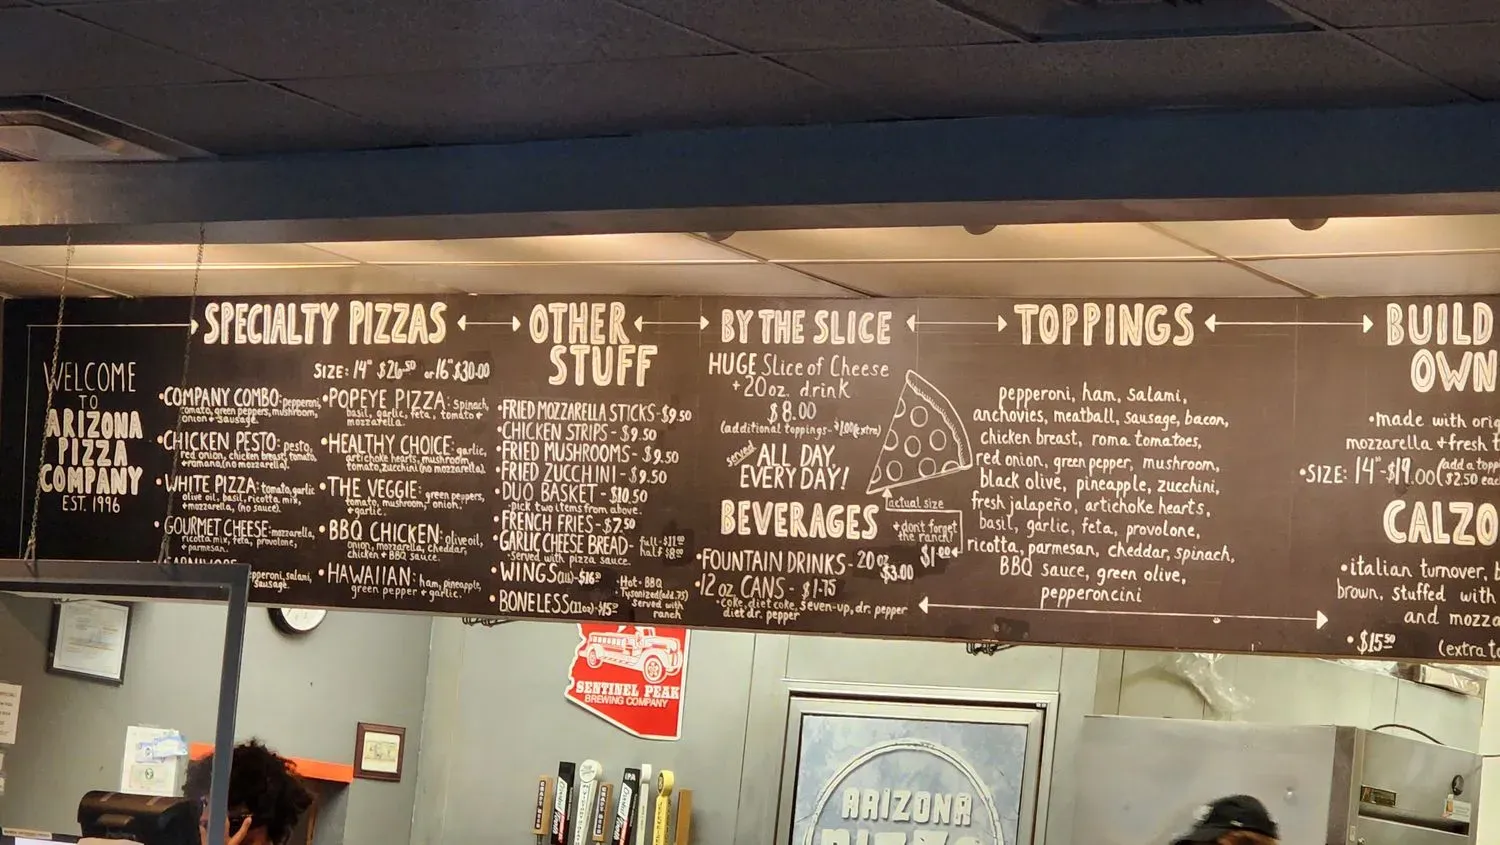 WELCOME
TO
ARIZONA
PIZZA
COMPANY
EST. 1996
SPECIALTY PIZZAS
SIZE: 14" $26.50 or 16" $30.00
•COMPANY COMBO: pepperoni,
tomato, green peppers, mushroom,
onion + sausage.
•CHICKEN PESTO: pesto,
red onion, chicken breast, tomato,
+romano (no mozzarella).
•WHITE PIZZA: tomato, garlic
olive oil, basil, ricotta mix,
+mozzarella, (no sauce).
•GOURMET CHEESE: mozzarella,
ricotta mix, feta, provolone,
+ parmesan.
pepperoni, salami,
sausage.
•POPEYE PIZZA: spinach,
basil, garlic, feta, tomato +
mozzarella.
•HEALTHY CHOICE: garlic,
artichoke hearts, mushroom,
tomato, zucchini (no mozzarella).
•THE VEGGIE: green peppers,
tomato, mushroom, onion,
+garlic.
•BBQ CHICKEN: olive oil,
onion, mozzarella, cheddar,
chicken + BBQ sauce.
•HAWAIIAN: ham, pineapple,
green pepper + garlic.
OTHER
STUFF
•FRIED MOZZARELLA STICKS - $9.50
•CHICKEN STRIPS - $9.50
•FRIED MUSHROOMS - $9.50
•FRIED ZUCCHINI - $9.50
•DUO BASKET - $10.50
-pick two items from above.
•FRENCH FRIES - $7.50
•GARLIC CHEESE BREAD- full- $11.00
half $8.00
-Served with pizza sauce.
•WINGS
•BONELESS (11oz)
•Hot - BBQ
•Tysonized (add .75)
served with
ranch
BY THE SLICE
HUGE Slice of Cheese
+ 20oz. drink
$8.00
(additional toppings- $1.00 extra)
served
ALL DAY,
EVERY DAY!
actual size
+dont forget
the ranch!
$1.00
BEVERAGES
•FOUNTAIN DRINKS - 20 oz
$3.00
•12 oz CANS - $1.75
•coke, diet coke, seven-up, dr. pepper
diet dr. pepper
TOPPINGS
pepperoni, ham, salami,
anchovies, meatball, sausage, bacon,
chicken breast, roma tomatoes,
red onion, green pepper, mushroom,
black olive, pineapple, zucchini,
fresh jalapeño, artichoke hearts,
basil, garlic, feta, provolone,
ricotta, parmesan, cheddar, spinach,
BBQ sauce, green olive,
pepperoncini
BUILD
OWN
•made with orig
mozzarella + fresh t
•SIZE: 14"-$19.00 (add a topp
$2.50 eac
CALZO
•italian turnover, b
brown, stuffed with
and mozza
•$15.50
(extra to
SENTINEL PEAK
BREWING COMPANY
IPA
ARIZONA
PIZZA